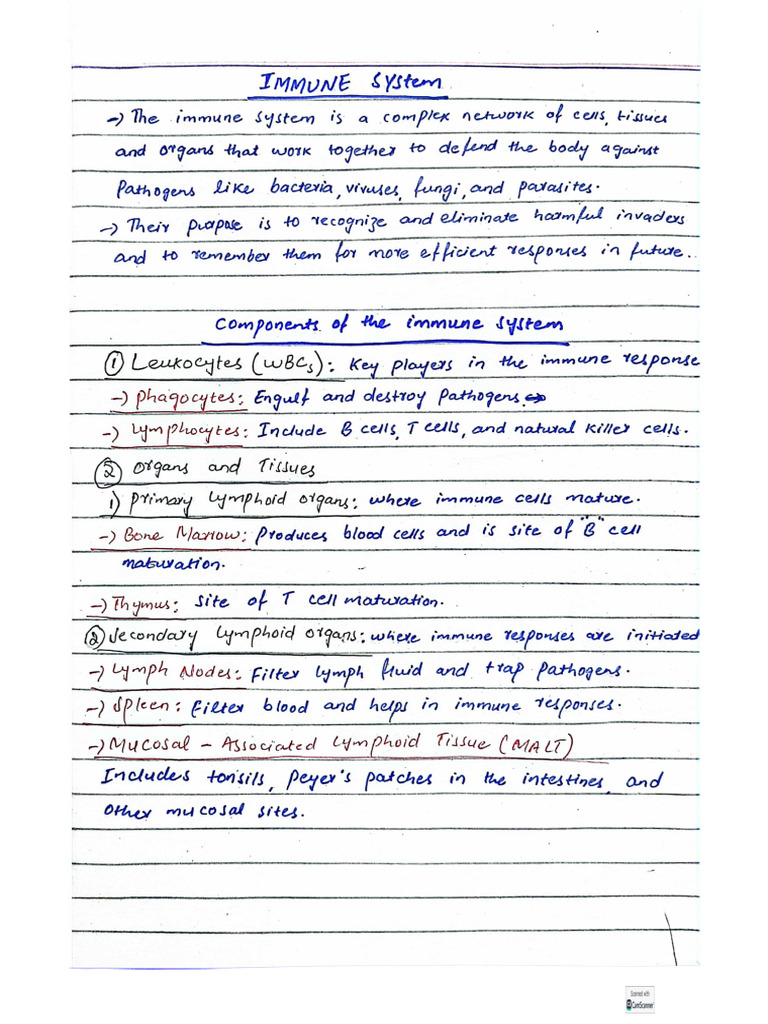 IMMUNE System
→ The immune system is a complex network of cells, tissues
and organs that work together to defend the body against
Pathogens like bacteria, viruses, fungi, and parasites.
→ Their purpose is to recognize and eliminate harmful invaders
and to remember them for more efficient responses in future..
Components of the immune system
① Leukocytes (WBCs): Key players in the immune response
→ Phagocytes: Engulf and destroy Pathogens.
→ Lymphocytes: Include B cells, T cells, and natural killer cells.
② Organs and Tissues
1) Primary lymphoid organs: where immune cells mature.
→ Bone Marrow: Produces blood cells and is site of "B" cell
maturation.
→ Thymus: Site of T cell maturation.
② Secondary lymphoid organs: where immune responses are initiated
→ Lymph Nodes: Filter lymph fluid and trap pathogens.
→ Spleen: Filter blood and helps in immune responses.
→ Mucosal - Associated Lymphoid Tissue (MALT)
Includes tonsils, Peyer's patches in the intestines, and
other mucosal sites.
Scanned with
CamScanner